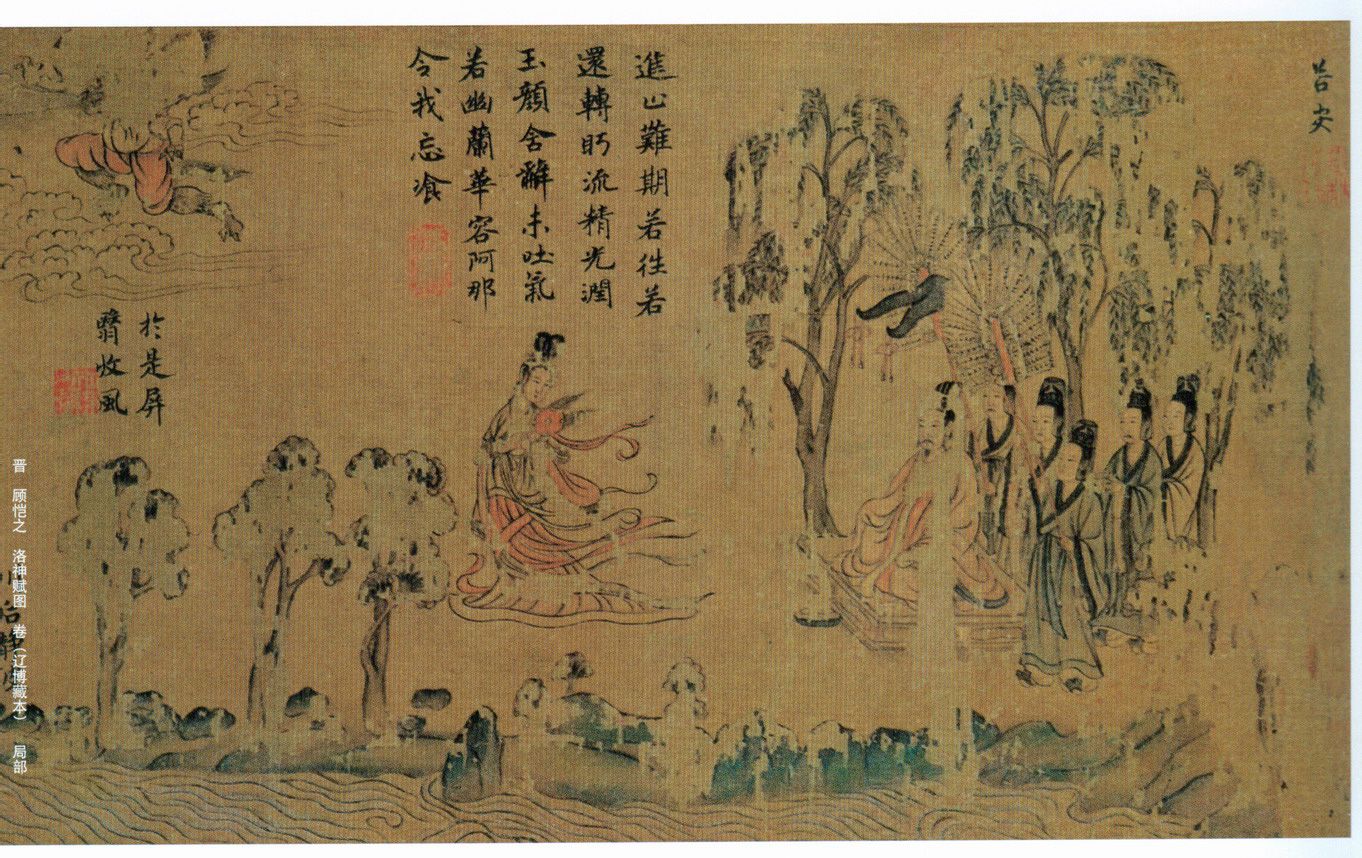 若安
進止難期若往若
還轉眄流精光潤
玉顏含辭未吐氣
若幽蘭華容阿那
令我忘湌
於是屏
翳收風
后靜
晋 顾恺之 洛神赋图 卷（辽博藏本） 局部